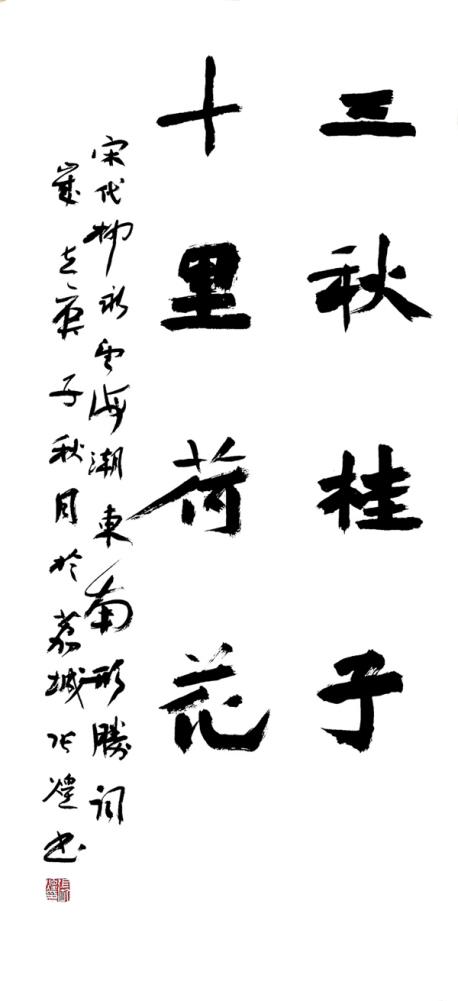 三秋桂子
十里荷花
宋代柳永望海潮東南形勝詞
歲在庚子秋月於荔城
書